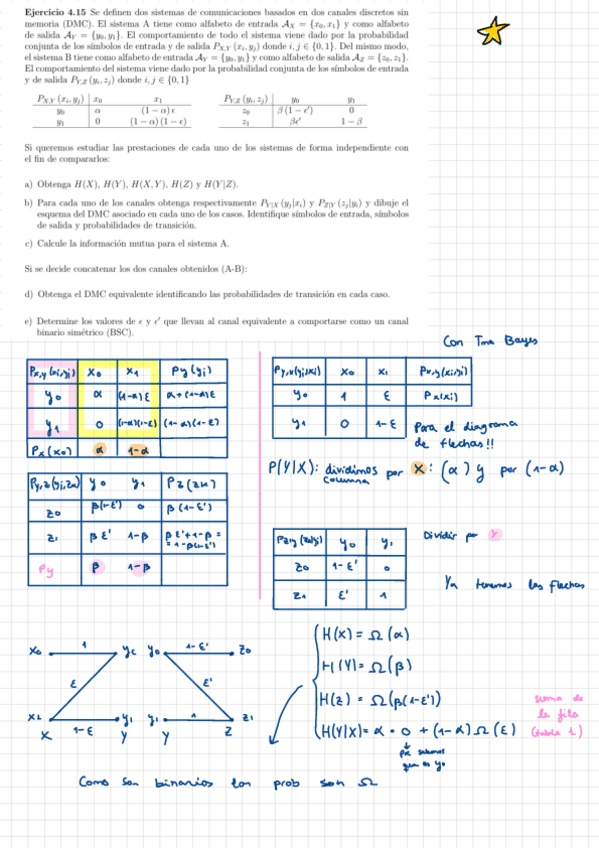 Ejercicio 4.15 Se definen dos sistemas de comunicaciones basados en dos canales discretos sin
memoria (DMC). El sistema A tiene como alfabeto de entrada A_X = {x₀, x₁} y como alfabeto
de salida A_Y = {y₀, y₁}. El comportamiento de todo el sistema viene dado por la probabilidad
conjunta de los símbolos de entrada y de salida P_{X,Y} (x_i, y_j) donde i, j ∈ {0, 1}. Del mismo modo,
el sistema B tiene como alfabeto de entrada A_Y = {y₀, y₁} y como alfabeto de salida A_Z = {z₀, z₁}.
El comportamiento del sistema viene dado por la probabilidad conjunta de los símbolos de entrada
y de salida P_{Y,Z} (y_i, z_j) donde i, j ∈ {0, 1}
P_{X,Y} (x_i, y_j) x₀ x₁
y₀ α (1 − α) ϵ
y₁ 0 (1 − α) (1 − ϵ)
P_{Y,Z} (y_i, z_j) y₀ y₁
z₀ β (1 − ϵ′) 0
z₁ βϵ′ 1 − β
Si queremos estudiar las prestaciones de cada uno de los sistemas de forma independiente con
el fin de compararlos:
a) Obtenga H(X), H(Y), H(X, Y), H(Z) y H(Y|Z).
b) Para cada uno de los canales obtenga respectivamente P_{Y|X} (y_j|x_i) y P_{Z|Y} (z_j|y_i) y dibuje el
esquema del DMC asociado en cada uno de los casos. Identifique símbolos de entrada, símbolos
de salida y probabilidades de transición.
c) Calcule la información mutua para el sistema A.
Si se decide concatenar los dos canales obtenidos (A-B):
d) Obtenga el DMC equivalente identificando las probabilidades de transición en cada caso.
e) Determine los valores de ϵ y ϵ′ que llevan al canal equivalente a comportarse como un canal
binario simétrico (BSC).
Con Tma Bayes
Px,y(xi,yi) x₀ x₁ Py(yi)
y₀ α (1-α)ε α+(1-α)ε
y₁ 0 (1-α)(1-ε) (1-α)(1-ε)
Px(x₀) α 1-α
Py,x(yj,xi) x₀ x₁ Px,y(xi,yi)
y₀ 1 ε Px(xi)
y₁ 0 1-ε
Para el diagrama
de flechas!!
P(Y|X): dividimos por x: (α) y por (1-α)
columna
Py,z(yi,zk) y₀ y₁ Pz(zk)
z₀ β(1-ε') 0 β(1-ε')
z₁ βε' 1-β βε'+1-β =
= 1-β(1-ε')
Py β 1-β
Pz|y(zk|yj) y₀ y₁
z₀ 1-ε' 0
z₁ ε' 1
Dividir por Y
Ya tenemos las flechas
x₀ 1 y₀ y₀ 1-ε' z₀
ε ε'
x₁ y₁ y₁ 1 z₁
X 1-ε Y Y Z
H(X) = Ω(α)
H(Y) = Ω(β)
H(Z) = Ω(β(1-ε'))
H(Y|X) = α · 0 + (1-α)Ω(ε)
suma de
la fila
(tabla 1)
pq sabemos
que es y₀
Como son binarios las prob son Ω